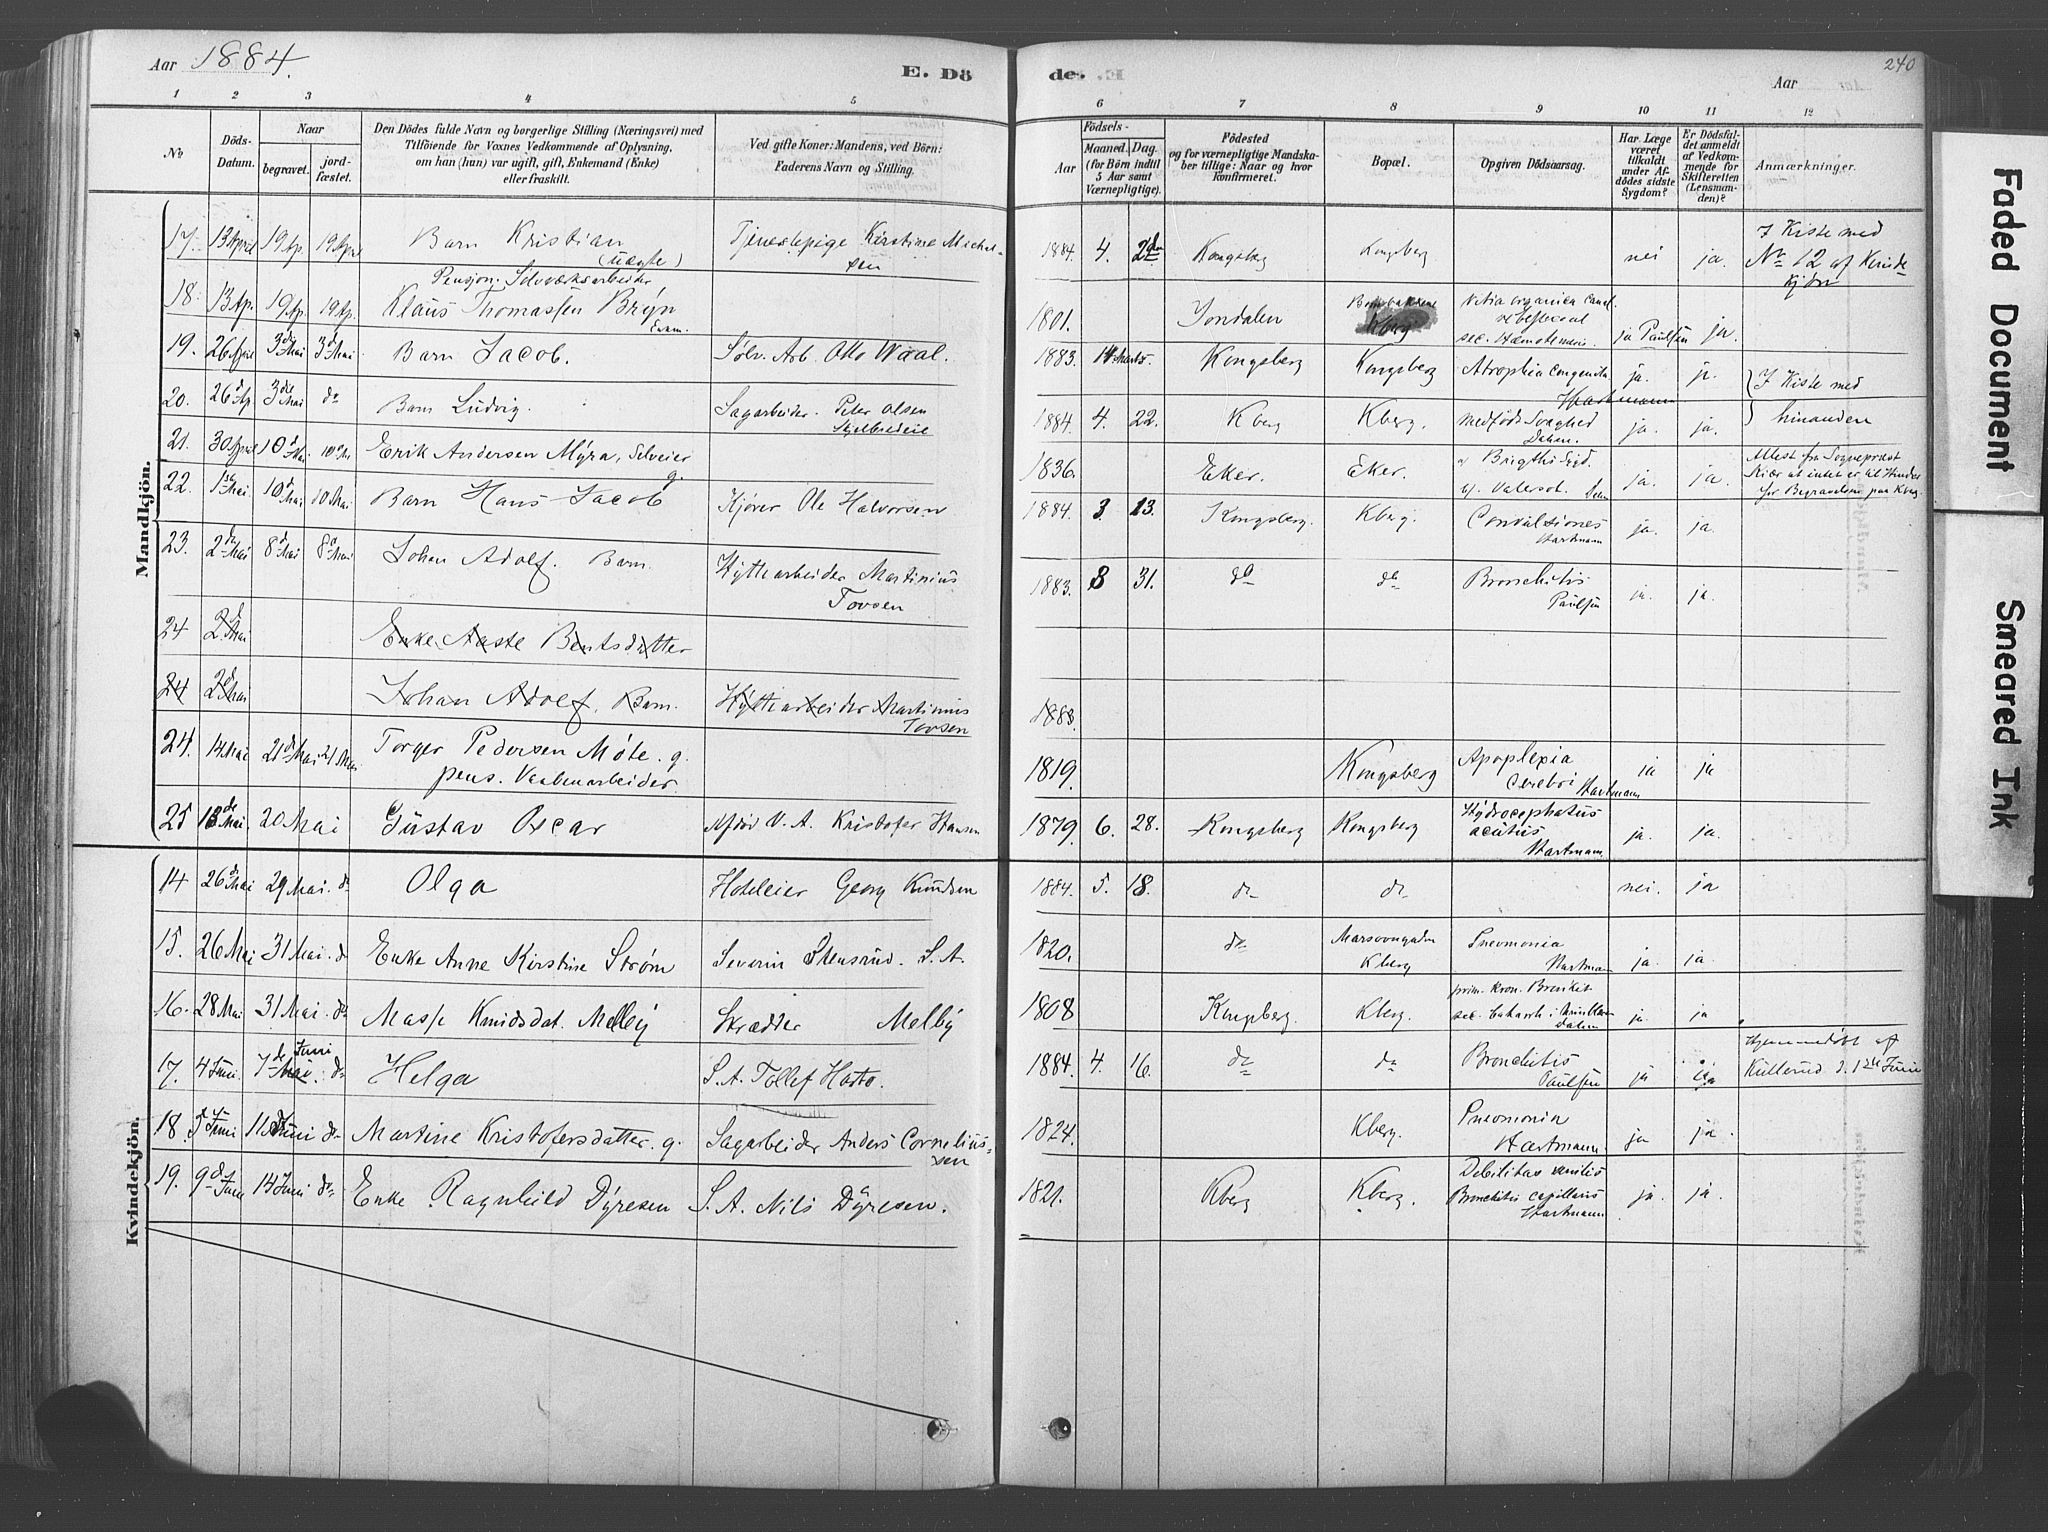 Aar 1884.
E. Dö
des. E
Aar
240
1 2 3 4 5 6 7 8 9 10 11 12
No
Döds-Datum.
Naar
begravet.
jord-fæstet.
Den Dödes fulde Navn og borgerlige Stilling (Næringsvei) med
Tilföiende for Voxnes Vedkommende af Oplysning,
om han (hun) var ugift, gift, Enkemand (Enke)
eller fraskilt.
Ved gifte Koner: Mandens, ved Börn:
Faderens Navn og Stilling.
Födsels-
Aar
Maaned. Dag.
(for Börn indtil
5 Aar samt
Værnepligtige).
Födested
og for værnepligtige Mandska-
ber tillige: Naar og hvor
konfirmeret.
Bopæl.
Opgiven Dödsaarsag.
Har Læge
været
tilkaldt
under Af-
dödes sidste
Sygdom?
Er Dödsfal-
det anmeldt
af Vedkom-
mende for
Skifteretten
(Lensman-
den)?
Anmærkninger.
Mandkjön.
17. 13 April 19 Ap. 19 April Barn Kristian (uægte) Tjenestepige Kirstine Michel-sen 1884. 4. 2den Kongsberg Kongsberg nei ja. I Kiste med No 12 af Kvinde-kjön
18. 13 Ap. 19 Ap. 19 Ap. Pensjon. Sølvværksarbeider
Klaus Thomassen Bryn Enkm. 1801. Jondalen Kberg Vitia organica sec. ja Paulsen ja.
19. 26 April 3die Mai 3d Mai Barn Jacob. Sølv. Arb. Otto Waal. 1883. 14 Marts. Kongsberg Kongsberg Atrophia congenita Hartmann ja. ja. } I Kiste med
20. 26d Ap. 3die Mai do Barn Ludvig. Sagarbeider. Peter Olsen 1884. 4. 22. Kberg Kberg. Medfødt Svaghed ja. ja. } hinanden
21. 30 April 10d Mai 10de Mai Erik Andersen Myra, Selveier g. 1836. Eker. Eker. ja. ja. Attest fra Sogneprest Kiær at intet er til Hinder for Begravelsen paa Kberg
22. 1ste Mai 10d Mai 10 Mai Barn Hans Jacob Kjører Ole Halvorsen 1884. 3. 13. Kongsberg. Kberg. Convulsiones Hartmann ja. ja.
23. 2den Mai 8d Mai 8d Mai Johan Adolf. Barn. Hyttearbeider Martinius Tovsen 1883. 8 31. do do Bronchitis Paulsen ja. ja.
24 2d Mai Enke Aaste Bentsdatter
24 2d Mai Johan Adolf. Barn. Hyttearbeider Martinius Tovsen 1883.
24. 14 Mai 21d Mai 21 Mai Torger Pedersen Møte. g.
pens. Vaabenarbeider. 1819. Kongsberg Apoplexia cerebri Hartmann ja ja
25 13de Mai 20 Mai Gustav Oscar Afdød V. A. Kristofer Hansen 1879. 6. 28. Kongsberg Kongsberg Hydrocephalus acutus Hartmann ja. ja.
Kvindekjön.
14 26d Mai 29 Mai. do Olga Hoteleier Georg Knudsen 1884. 5. 18. do do nei. ja
15. 26 Mai 31 Mai. do Enke Anne Kirstine Strøm Severin Stensrud. S. A. 1820. do Kberg Pneomonia Hartmann ja. ja.
16. 28 Mai 31 Mai. do Knudsdat. Melby Melby 1808 Kongsberg. Kberg. prim. kron. Bronkit sec. ja. ja
17. 4 Juni. 7de Mai. Juni do Helga S. A. Tollef Hasto. 1884. 4. 16. do do Bronchitis Paulsen ja ja Hjemmedøbt af Kullerud d. 1ste Juni
18. 5 Juni 11 Juni do Martine Kristofersdatter. g. Sagarbeider Anders Cornelius-sen 1824. Kberg. Pneomonia Hartmann ja ja.
19. 9de Juni 14 Juni do Enke Ragnhild Dyresen S. A. Nils Dyresen. 1821. Kberg Kberg. Debilitas senilis Bronchitis capillaris Hartmann ja. ja.
Faded Document
Smeared Ink